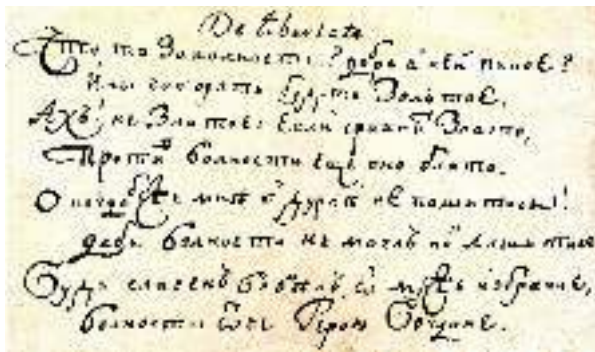 De libertate
Что то за волность? добро в ней какое?
Ины говорять будто золотое.
Ахъ! не златое: если сравнить злато,
Против волности еще оно блато.
О когда бы мнѣ в дурни не пошитись!
дабы волности не моглъ лишитись
Будь славенъ вовѣкъ, о муже избранне,
Волности отче Герою Богдане.